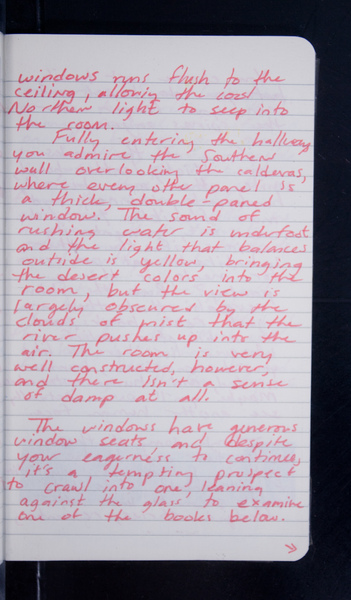 windows runs flush to the
ceiling, allowing the cool
Northern light to seep into
the room.
Fully entering the hallway
you admire the Southern
wall overlooking the calderas,
where every other panel is
a thick, double-paned
window. The sound of
rushing water is underfoot
and the light that balances
outside is yellow, bringing
the desert colors into the
room, but the view is
largely obscured by the
clouds of mist that the
river pushes up into the
air. The room is very
well constructed, however,
and there isn't a sense
of damp at all.
The windows have generous
window seats, and despite
your eagerness to continue,
it's a tempting prospect
to crawl into one, leaning
against the glass to examine
one of the books below.